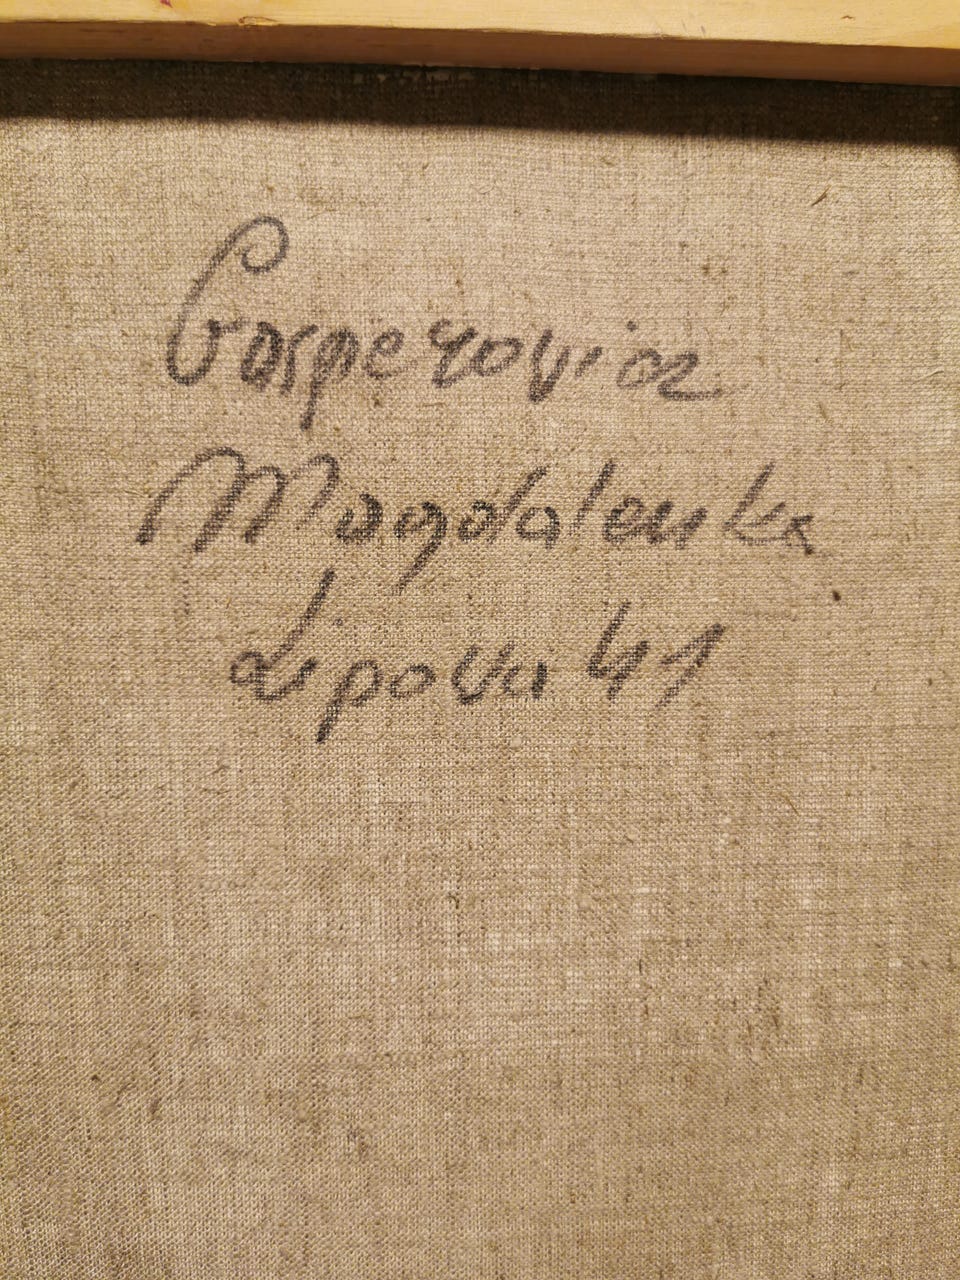 Gasperowicz
Magdalenka
Lipowa 41